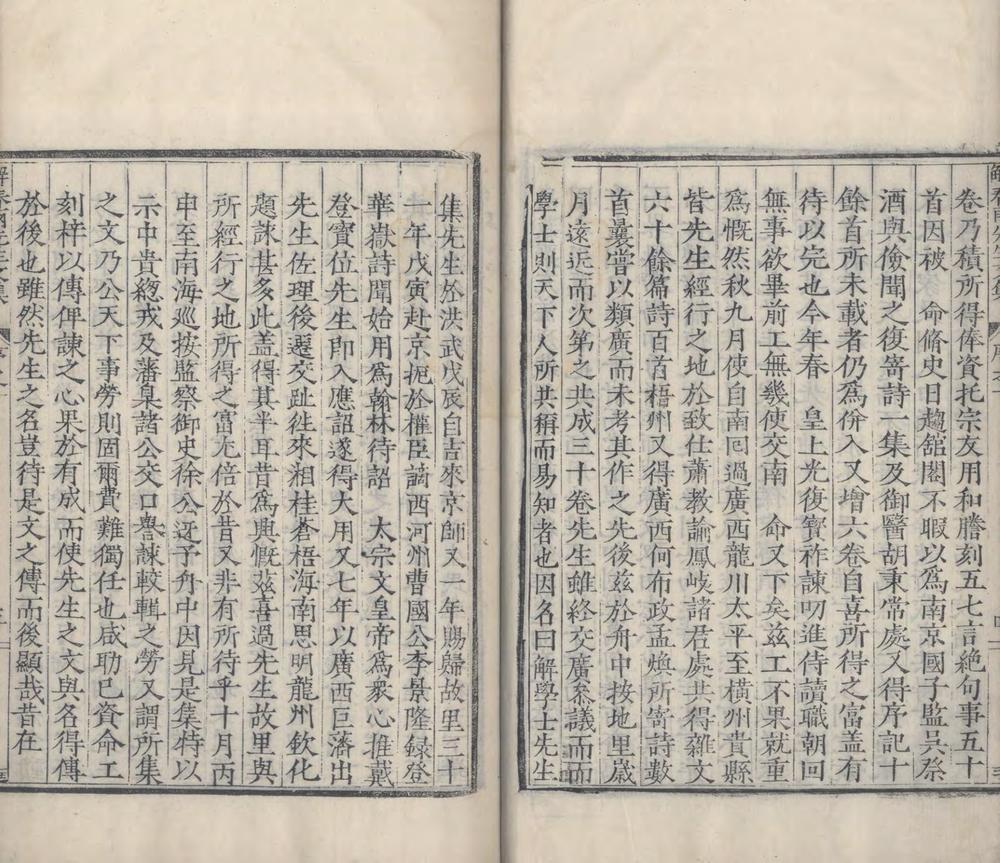 卷乃積所得俸資托宗友用和謄刻五七言絕句事五十
首因被　命脩史日趨舘閣不暇以為南京國子監吳祭
酒與儉聞之復寄詩一集及御醫胡秉常處又得序記十
餘首所未載者仍為併入又增六卷自喜所得之富盖有
待以完也今年春　皇上光復寶祚諫叨進侍讀職朝回
無事欲畢前工無幾使交南　命又下矣茲工不果就重
為慨然秋九月使自南囘過廣西龍川太平至橫州貴縣
皆先生經行之地於致仕蕭教諭鳳岐諸君處共得雜文
六十餘篇詩百首梧州又得廣西何布政孟煥所寄詩數
首曩嘗以類廣而未考其作之先後茲於舟中按地里歲
月遠近而次第之共成三十卷先生雖終交廣叅議而而
學士則天下人所共稱而易知者也因名曰解學士先生
集先生於洪武戊辰自吉來京師又一年賜歸故里三十
一年戊寅赴京扼於權臣謫西河州曹國公李景隆録登
華嶽詩聞始用為翰林待詔　太宗文皇帝為衆心推戴
登寶位先生即入應詔遂得大用又七年以廣西巨藩出
先生佐理後遷交趾徃來湘桂蒼梧海南思明龍州欽化
題詠甚多此盖得其半耳昔為興慨兹喜過先生故里與
所經行之地所得之富尤倍於昔又非有所待乎十月丙
申至南海巡按監察御史徐公迓予舟中因見是集特以
示中貴緫戎及藩臬諸公交口譽諫較輯之勞又謂所集
之文乃公天下事勞則固爾費難獨任也咸助已資命工
刻梓以傳俾諫之心果於有成而使先生之文與名得傳
於後也雖然先生之名豈待是文之傳而後顯哉昔在